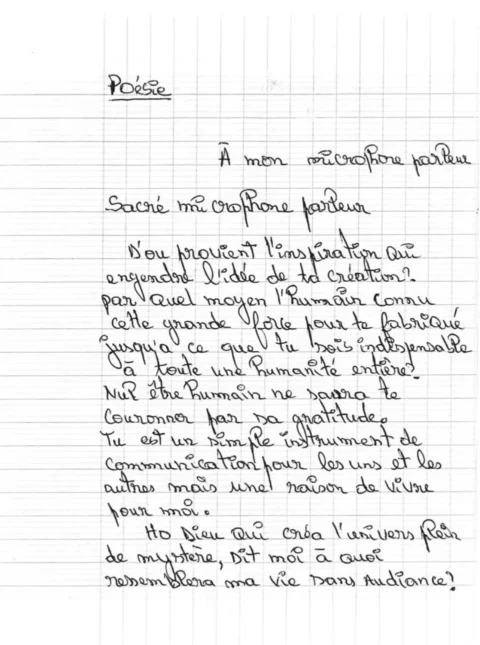 Poésie
À mon microphone parleur
Sacré microphone parleur
D'ou provient l'inspiration qui
engendre l'idée de ta création?
par quel moyen l'humain connu
cette grande force pour te fabriqué
jusqu'a ce que tu sois indispensable
à toute une humanité entière?
Nul être humain ne saura te
couronner par sa gratitude.
Tu est un simple instrument de
communication pour les uns et les
autres mais une raison de vivre
pour moi.
Ho Dieu qui créa l'univers plein
de mystère, Dit moi à quoi
ressemblera ma vie sans Audiance?